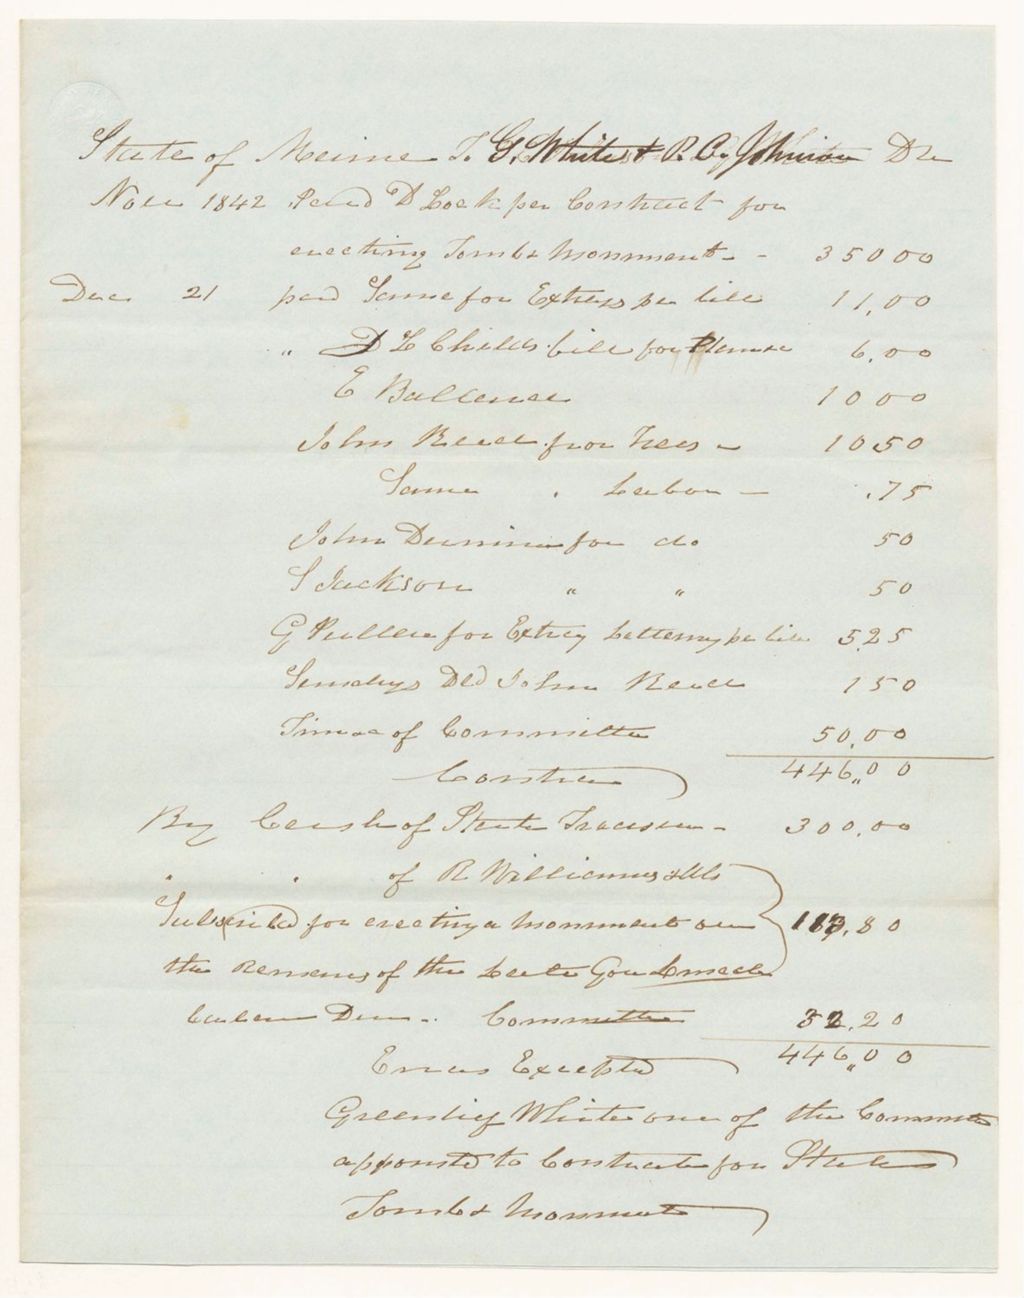 State of Maine To G. White & R. C. Johnson Dr
Nov 1842 Paid D Lock per Contract for
erecting Tomb & Monument - - 350 00
Dec 21 paid Same for Extras per bill 11,00
" D L Childs bill for 6,00
E Ballance 10 00
John Reed for Trees - 10 50
Same " Labour - .75
John Dunnin for do 50
S Jackson " " 50
G Pullen for Extrey Lettering per bill 5,25
Sundrys Del John Reed 1 50
Time of Committee 50,00
446,,00
By Cash of State Treasurer - 300,00
" " of R Williams & Als
Subscribed for erecting a Monument over 113,80
the Remains of the Late Gov
balance Due -. Committee 32,20
446,,00
Errors Excepted
Greenlief White one of the Committe
apponted to Contract for State
Tomb & Monument